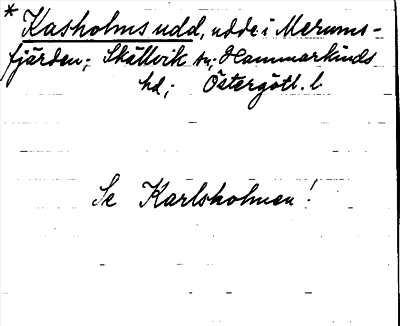 * Kasholms udd, udde i Merums-
fjärden; Skällvik sn; Hammarkinds
hd; Östergötl. l
Se Karlsholmen!